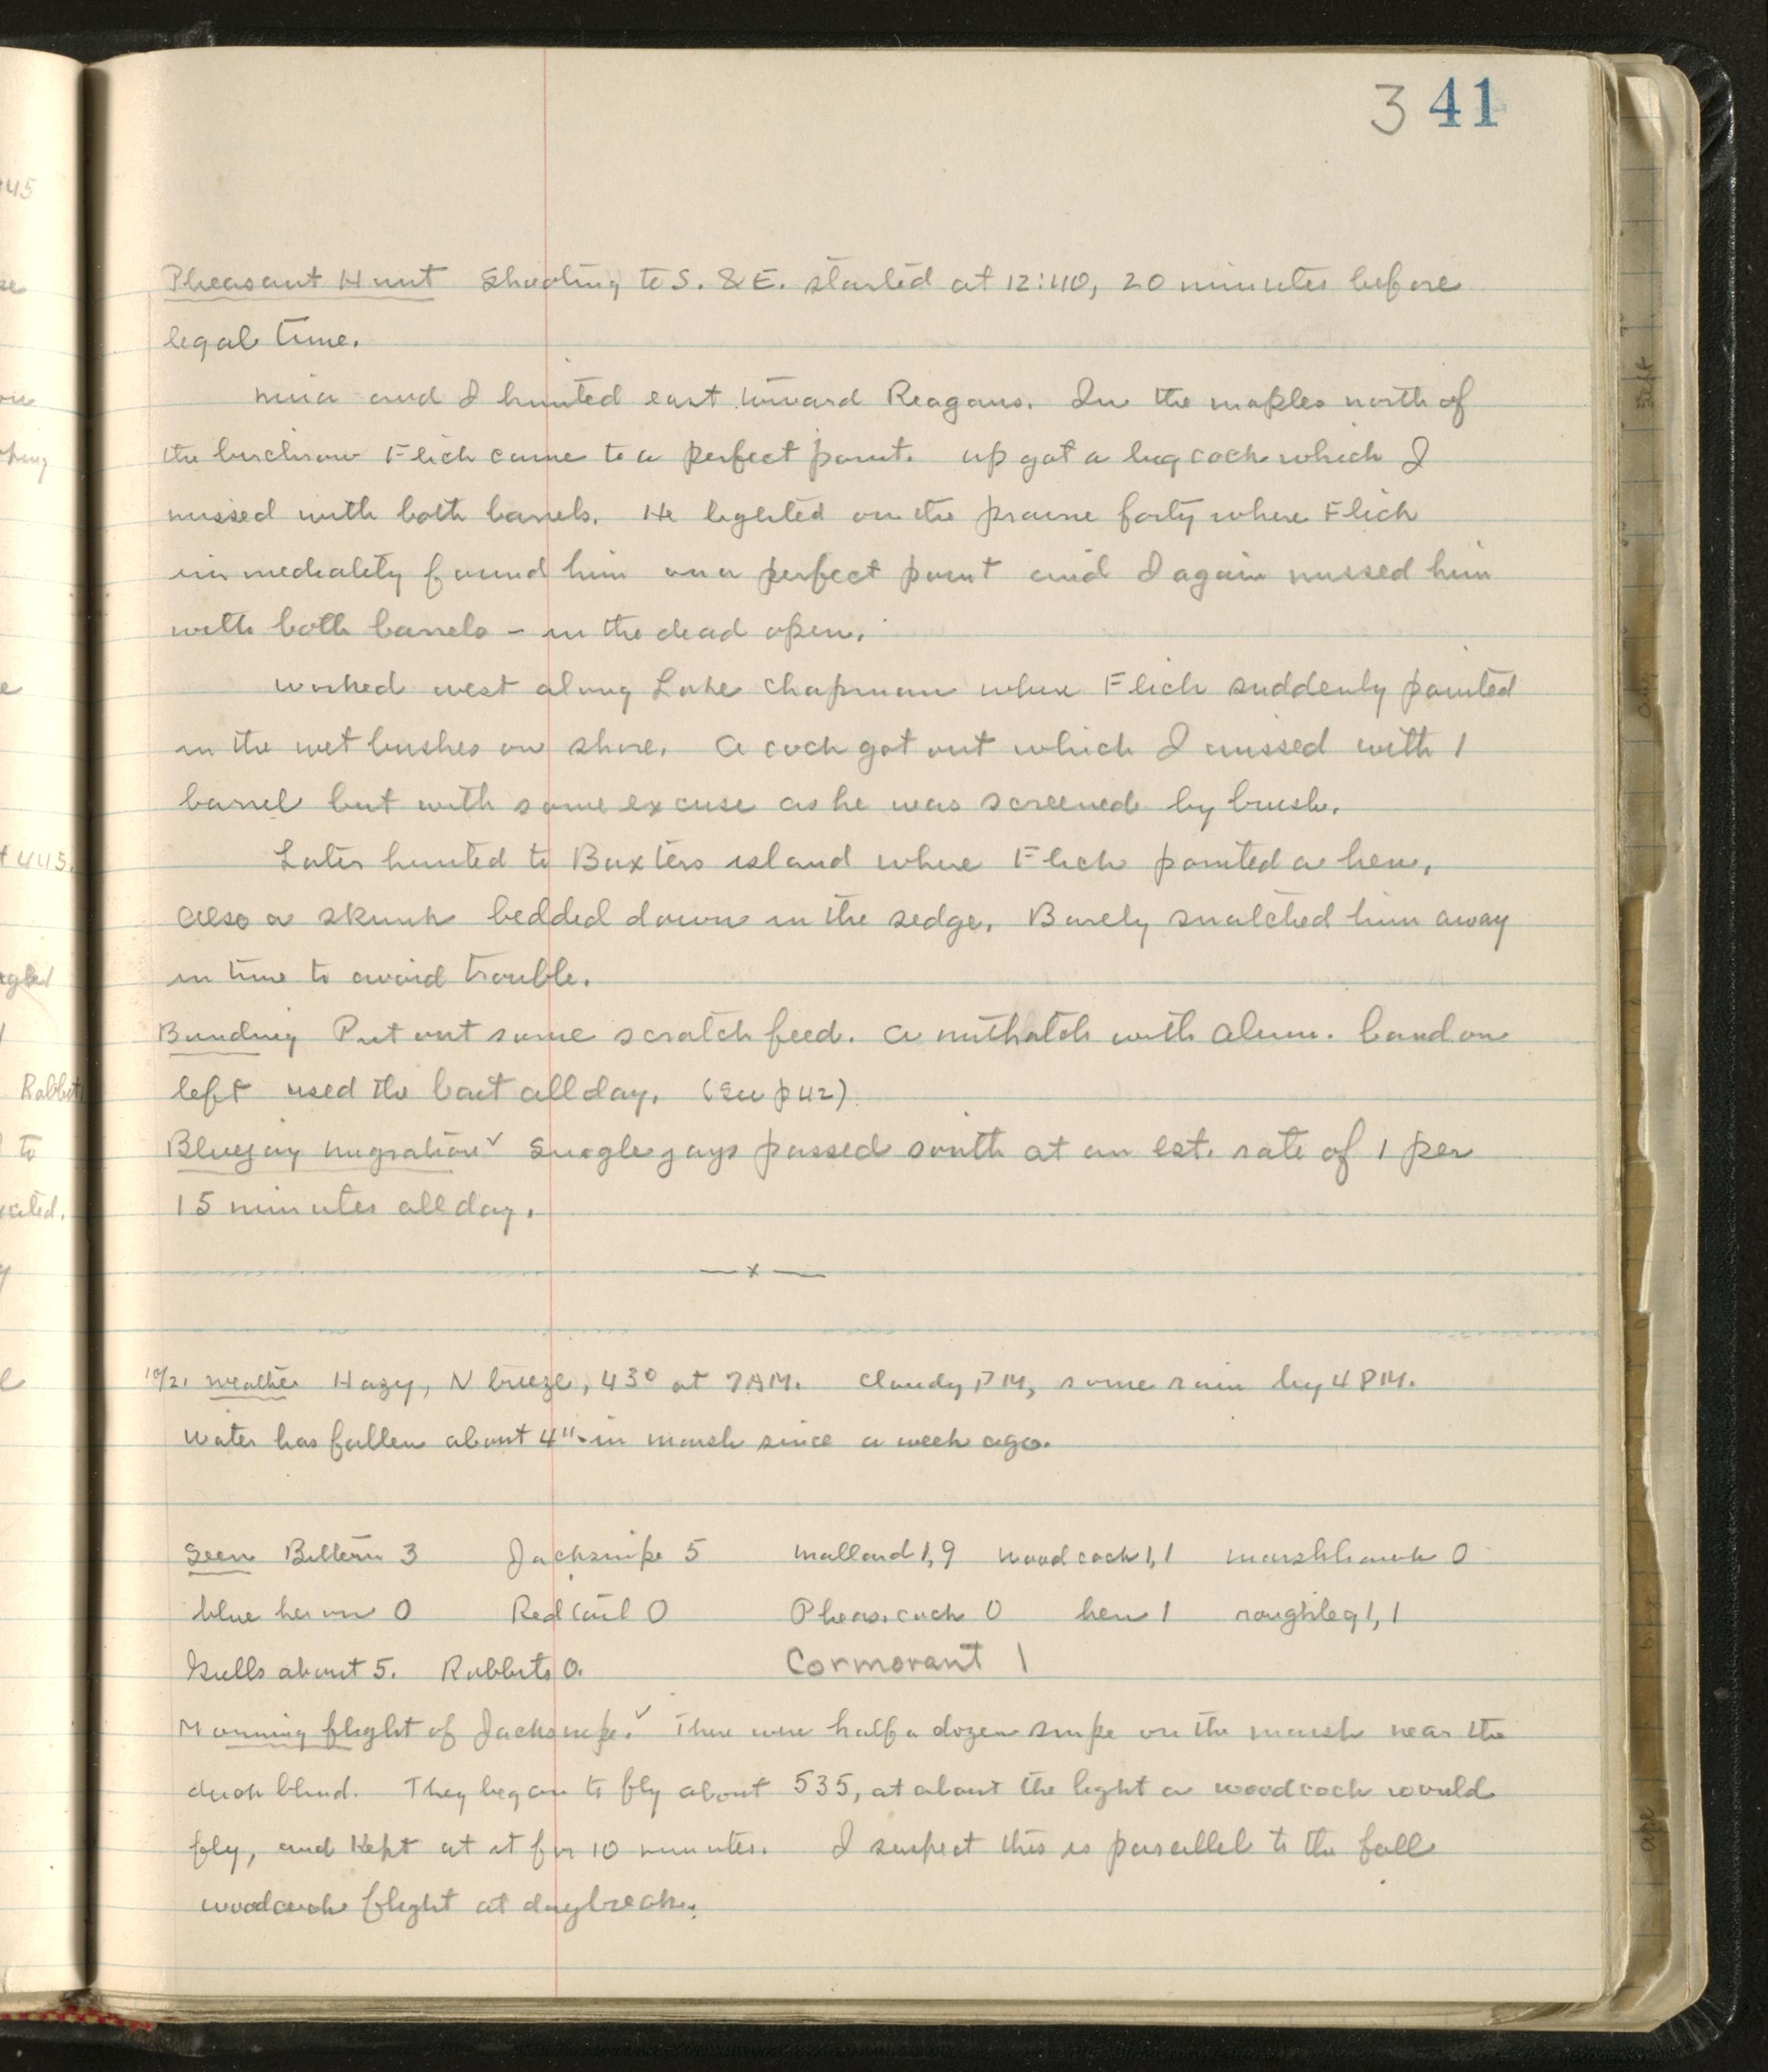 341
Pheasant Hunt Shooting to S. & E. started at 12:40, 20 minutes before
legal time.
Nina and I hunted east toward Reagans. In the maples north of
the birchrow Flick came to a perfect point. Up got a big cock which I
missed with both barrels. He lighted on the prairie forty where Flick
immediately found him on a perfect point and I again missed him
with both barrels - in the dead open.
Worked west along Lake Chapman when Flick suddenly pointed
in the wet bushes on shore. A cock got out which I missed with 1
barrel but with some excuse as he was screened by brush.
Later hunted to Baxters island where Flick pointed a hen,
also a skunk bedded down in the sedge. Barely snatched him away
in time to avoid trouble.
Banding Put out some scratch feed. A nuthatch with alum. band on
left used the bait all day. (See p 42)
Bluejay migration ✓ Single jays passed south at an est. rate of 1 per
15 minutes all day.
—x—
10/21 Weather Hazy, N breeze, 43° at 7AM. Cloudy PM, some rain by 4 PM.
Water has fallen about 4" in marsh since a week ago.
Seen Bittern 3 Jacksnipe 5 Mallard 1, 9 Woodcock 1, 1 Marshhawk 0
blue heron 0 Redtail 0 Pheas. cock 0 hen 1 roughleg 1, 1
Gulls about 5. Rabbits 0. Cormorant 1
Morning flight of Jacksnipe. ✓ There were half a dozen snipe on the marsh near the
duck blind. They began to fly about 535, at about the light a woodcock would
fly, and kept at it for 10 minutes. I suspect this is parallel to the fall
woodcock flight at daybreak.